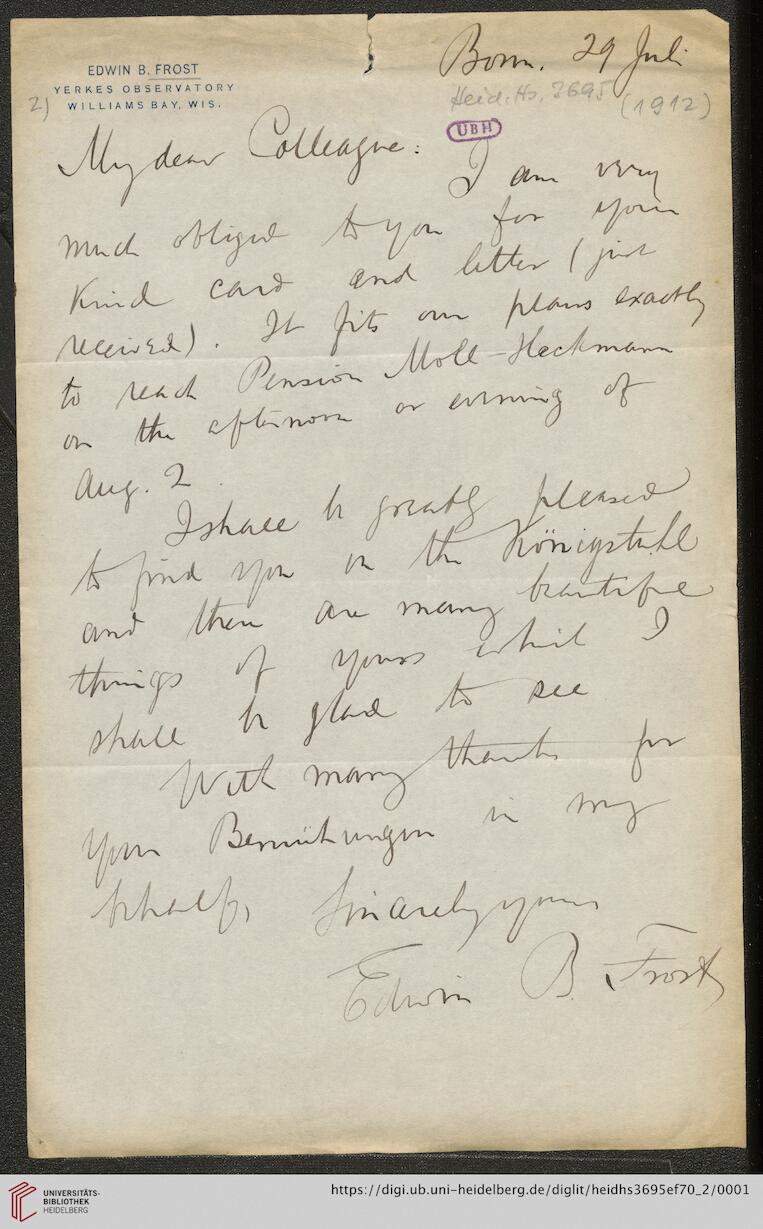 EDWIN B. FROST
YERKES OBSERVATORY
WILLIAMS BAY, WIS.
2)
Bonn. 29 Juli
Heid. Hs. 3695 (1912)
UBH
My dear Colleague:
I am very
much obliged to you for your
kind card and letter (just
received). It fits our plans exactly
to reach Pension Moll-Heckmann
on the afternoon or evening of
Aug. 2.
I shall be greatly pleased
to find you on the Königstuhl
and there are many beautiful
things of yours which I
shall be glad to see
With many thanks for
your Bemühungen in my
behalf,
Sincerely yours
Edwin B. Frost
UNIVERSITÄTS-
BIBLIOTHEK
HEIDELBERG
https://digi.ub.uni-heidelberg.de/diglit/heidhs3695ef70_2/0001